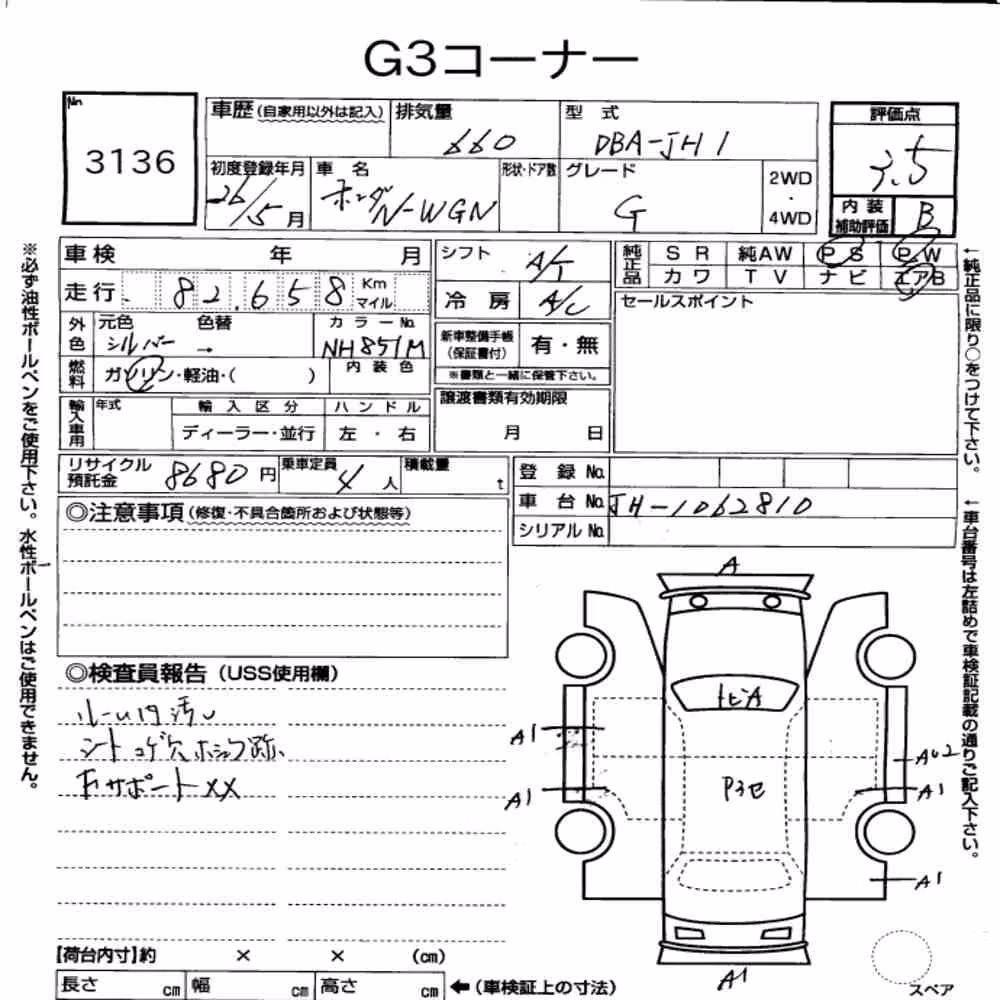 G3コーナー
No 3136
車歴 (自家用以外は記入) 排気量 660 型式 DBA-JH1 評価点 3.5
初度登録年月 26/5月 車名 ホンダ N-WGN 形状・ドア数 グレード G 2WD・4WD 内装補助評価 B
車検 年 月 シフト A/T 純正品 SR 純AW PS PW
カワ TV ナビ エアB
走行 82,658 Km マイル 冷房 A/C セールスポイント
外色 元色 シルバー 色替 → カラーNo. NH851M 新車整備手帳 (保証書付) 有・無
※書類と一緒に保管下さい。
燃料 ガソリン・軽油・( ) 内装色
輸入車用 年式 輸入区分 ハンドル 譲渡書類有効期限
ディーラー・並行 左・右 月 日
リサイクル預託金 8680円 乗車定員 4人 積載量 t 登録No.
車台No. JH1-1062810
シリアルNo.
◎注意事項 (修復・不具合箇所および状態等)
◎検査員報告 (USS使用欄)
ルーム内汚レ
シートコゲ穴 ホシュウ跡
下サポートXX
A
トビA
A1
A1
P3セ
AU2
A1
A1
A1
スペア
【荷台内寸】約 × × (cm)
長さ cm 幅 cm 高さ cm ←(車検証上の寸法)
※必ず油性ボールペンをご使用下さい。水性ボールペンはご使用できません。
←純正品に限り○をつけて下さい。
←車台番号は左詰めで車検証記載の通りご記入下さい。